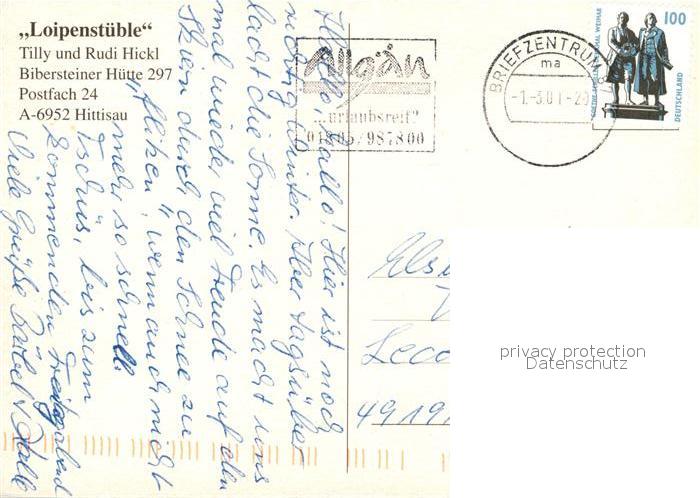 „Loipenstüble“
Tilly und Rudi Hickl
Bibersteiner Hütte 297
Postfach 24
A-6952 Hittisau
Hallo Hallo! Hier ist noch
richtig Winter. Aber tagsüber
lacht die Sonne. Es macht uns
mal wieder viel Freude auf den
Skiern durch den Schnee zu
"flitzen", wenn auch nicht
mehr so schnell.
Tschüs, bis zum
kommenden Freitagabend
Viele Grüße Bärbel +
Allgäu
...urlaubsreif?
01805/987800
BRIEFZENTRUM
ma
-1.-3.01-20
100
DEUTSCHLAND
GOETHE-SCHILLER-DENKMAL WEIMAR
Els
Lee
4919
privacy protection
Datenschutz